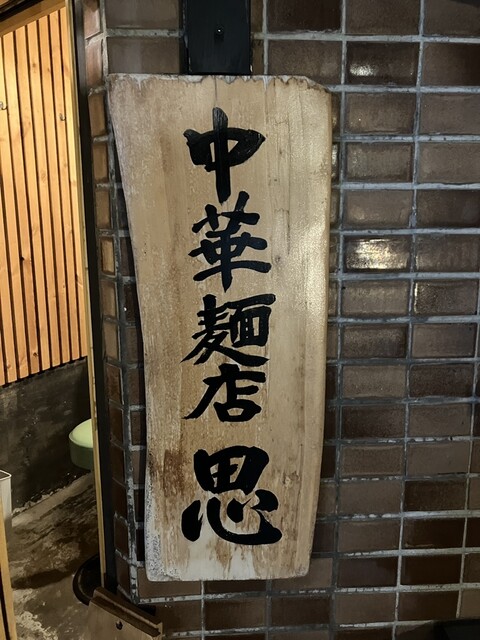 中華麺店 思